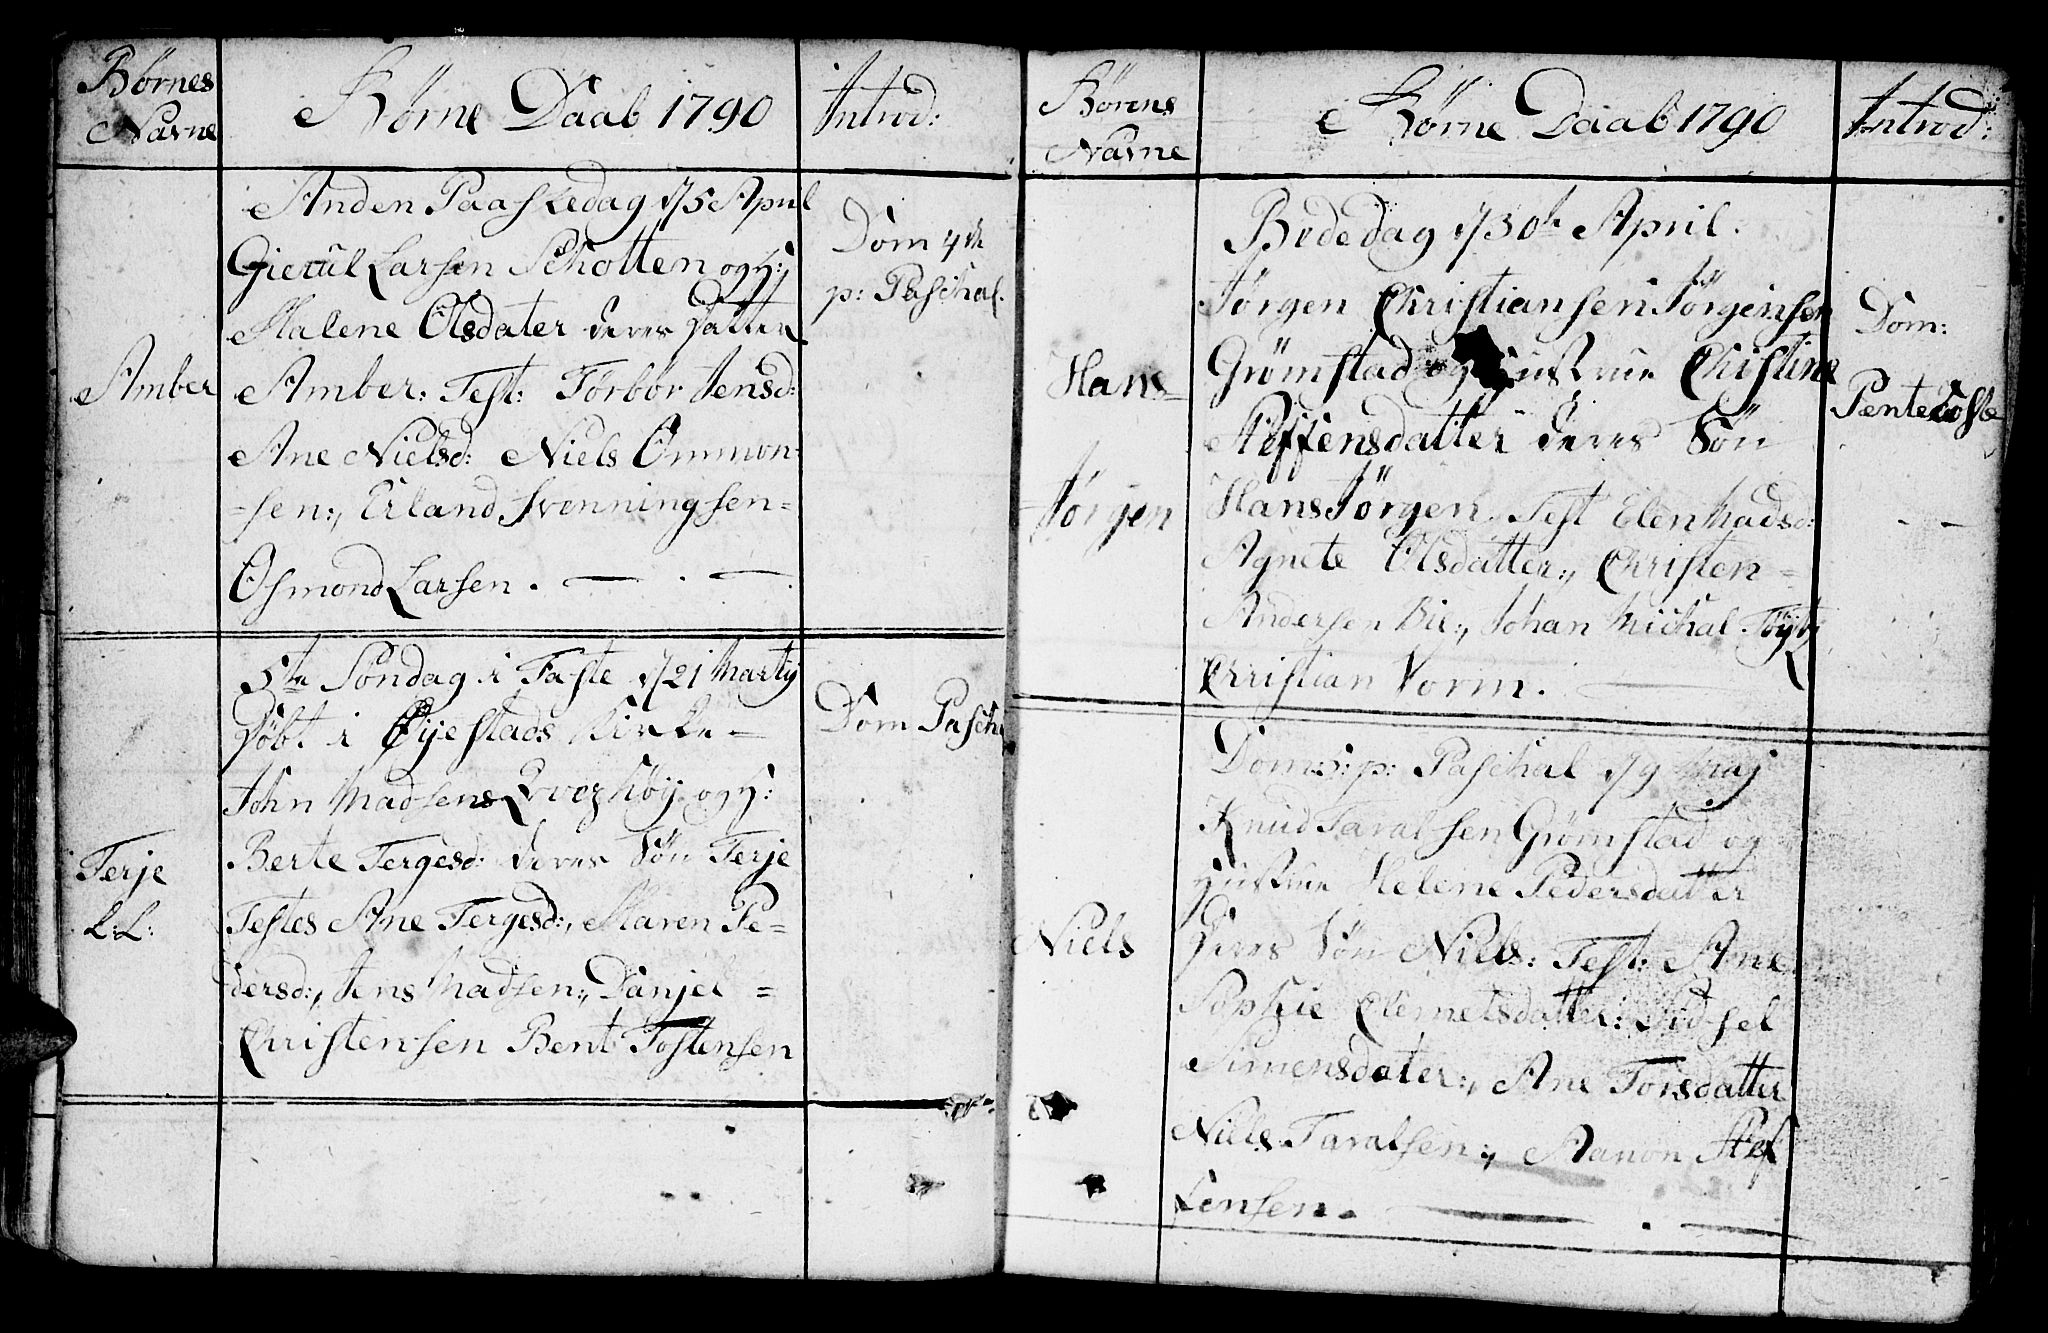 Børnes
Navne
Børne Daab 1790
Introd:
Anden Paaskedag d/5 April
Gierul Larsen Schotten og H:
Malene Olsdater deres Datter
Amber: Test: Torbør Jensd:
Ane Nielsd: Niels Ommon-
-sen:, Erland Svenningsen=
Osmond Larsen.
Amber
Dom 4de
p: Paschal.
5te Søndag i Faste d/21 Marty
Døbt i Øyestads Kirke-
John Madsens og H:
Berte Tergesd: deres Søn Terje
Testes Ane Tergesd:, Maren Pe=
dersd:, Jens Madsen:, Danjel =
Christensen Bent Tostensen
Terje
L:L:
Dom Pasch
Børens
Navne
Børne Daab 1790
Introd:
Bededag d/30te April.
Jørgen Christiansen Jørgensen
Grømstad og Hustrue Christine
Steffensdatter deres Søn
Hans Jørgen. Test Elen Madsd:
Agnete Olsdatter:, Christen=
Andersen Bie:, Johan Michal
Christian Vorm.
Hans=
Jørgen
Dom:
Pentecoste
Dom:5: p: Paschal d/9 Maj
Knud Taralsen Grømstad og
Hustrue Helene Pedersdatter
deres Søn Niels: Test: Ane
Sophie Clemetsdatter: Sidsel
Simensdater:, Ane Torsdatter
Niels Taralsen:, Aanon Stef
fensen.
Niels